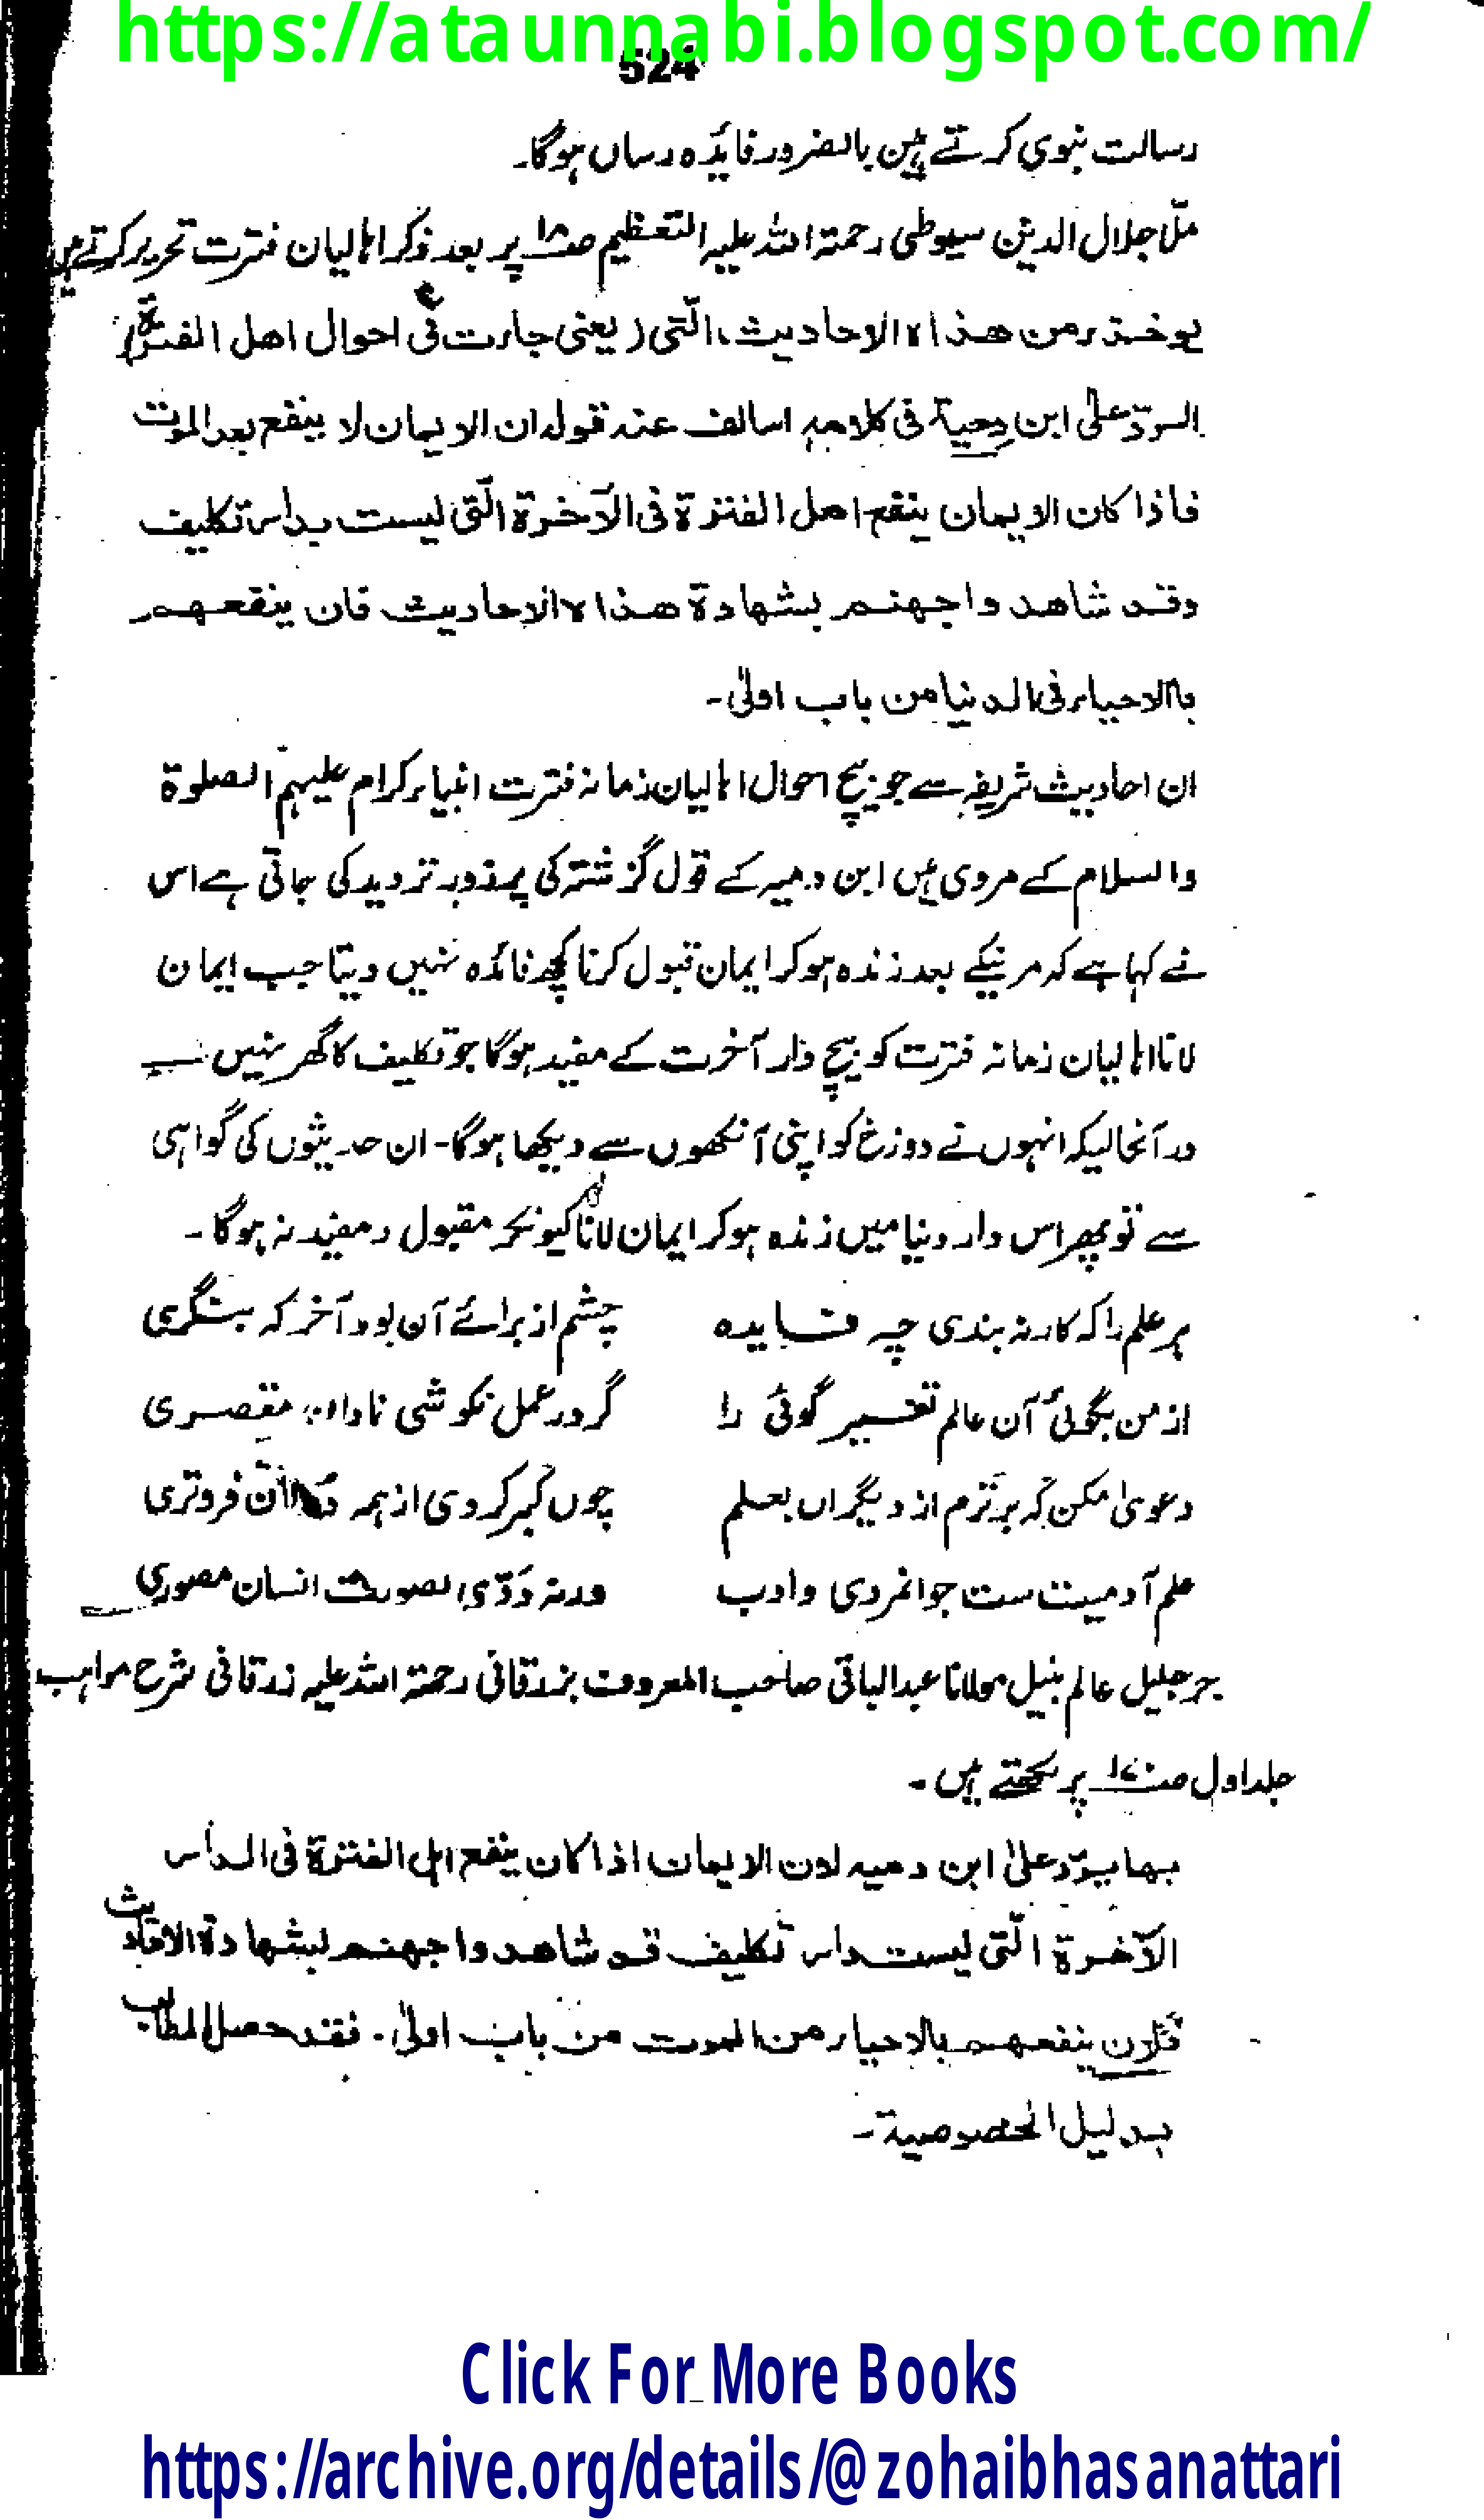 https://ataunnabi.blogspot.com/
524
رسالت نبوی کرتے ہیں بالضرور فایدہ رساں ہوگا۔
ملّا جلال الدین سیوطی رحمۃ اللہ علیہ التعظیم صفحہ ۱۸ پر بعد ذکر اہالیان فترت تحریر کرتے ہیں
یوخذ من ھذہ الاحادیث التی (یعنی جاءت فی احوال اھل الفترۃ)
الردّ علیٰ ابن دحیۃ فی کلامہ السالف عند قولہ ان الایمان لا ینفع بعد الموت
فاذا کان الایمان ینفع اھل الفترۃ فی الآخرۃ التی لیست بدار تکلیف
وقد شاھدوا جھنم بشھادۃ ھذہ الاحادیث فان ینفعھم
بالاحیاء فی الدنیا من باب اولیٰ۔
ان احادیث شریفہ سے جو بیچ احوال اہالیان زمانہ فترت انبیاء کرام علیہم الصلوۃ
والسلام کے مروی ہیں ابن دحیہ کے قول گزشتہ کی پرزور تردید کی جاتی ہے اس
نے کہا ہے کہ مرنیکے بعد زندہ ہوکر ایمان قبول کرنا کچھ فائدہ نہیں دیتا جب ایمان
لانا اہالیان زمانہ فترت کو بیچ دار آخرت کے مفید ہوگا جو تکلیف کا گھر نہیں ہے
در آنحالیکہ انہوں نے دوزخ کو اپنی آنکھوں سے دیکھا ہوگا۔ ان حدیثوں کی گواہی
سے تو پھر اس دار دنیا میں زندہ ہوکر ایمان لانا کیونکر مقبول و مفید نہ ہوگا۔
ہر علم را کہ کار نہ بندی چہ فایدہ چشم از برائے آن بود آخر کہ بنگری
از من بگوئی آن عالم تفسیر گوئی را گر در عمل نکوشی نادان مقصری
دعویٰ مکن کہ برترم از دیگراں بعلم چوں کبر کردی از ہمہ فروتری
علم آدمیت ست جوانمردی و ادب ورنہ ددّی بصورت انسان مصوری
جر جلیل عالم نبیل مولانا عبدالباقی صاحب المعروف بزرقانی رحمۃ اللہ علیہ زرقانی شرح مواہب
جلد اول صفحہ ۱۷ پر لکھتے ہیں۔
بھا یردّ علیٰ ابن دحیہ لان الایمان اذا کان ینفع اہل الفترۃ فی الدار
الآخرۃ التی لیست دار تکلیف قد شاھدوا جھنم بشھادۃ الاحادیث
فلان ینفعھم بالاحیاء من الموت من باب اولیٰ۔ فقد حصل المطالب
بدلیل الخصوصیۃ۔
Click For More Books
https://archive.org/details/@zohaibhasanattari